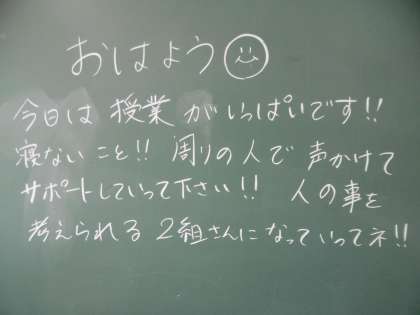 おはよう
今日は 授業 がいっぱいです!!
寝ないこと!! 周りの人で 声かけて
サポートしていって下さい!! 人の事を
考えられる 2組さんになっていってネ!!